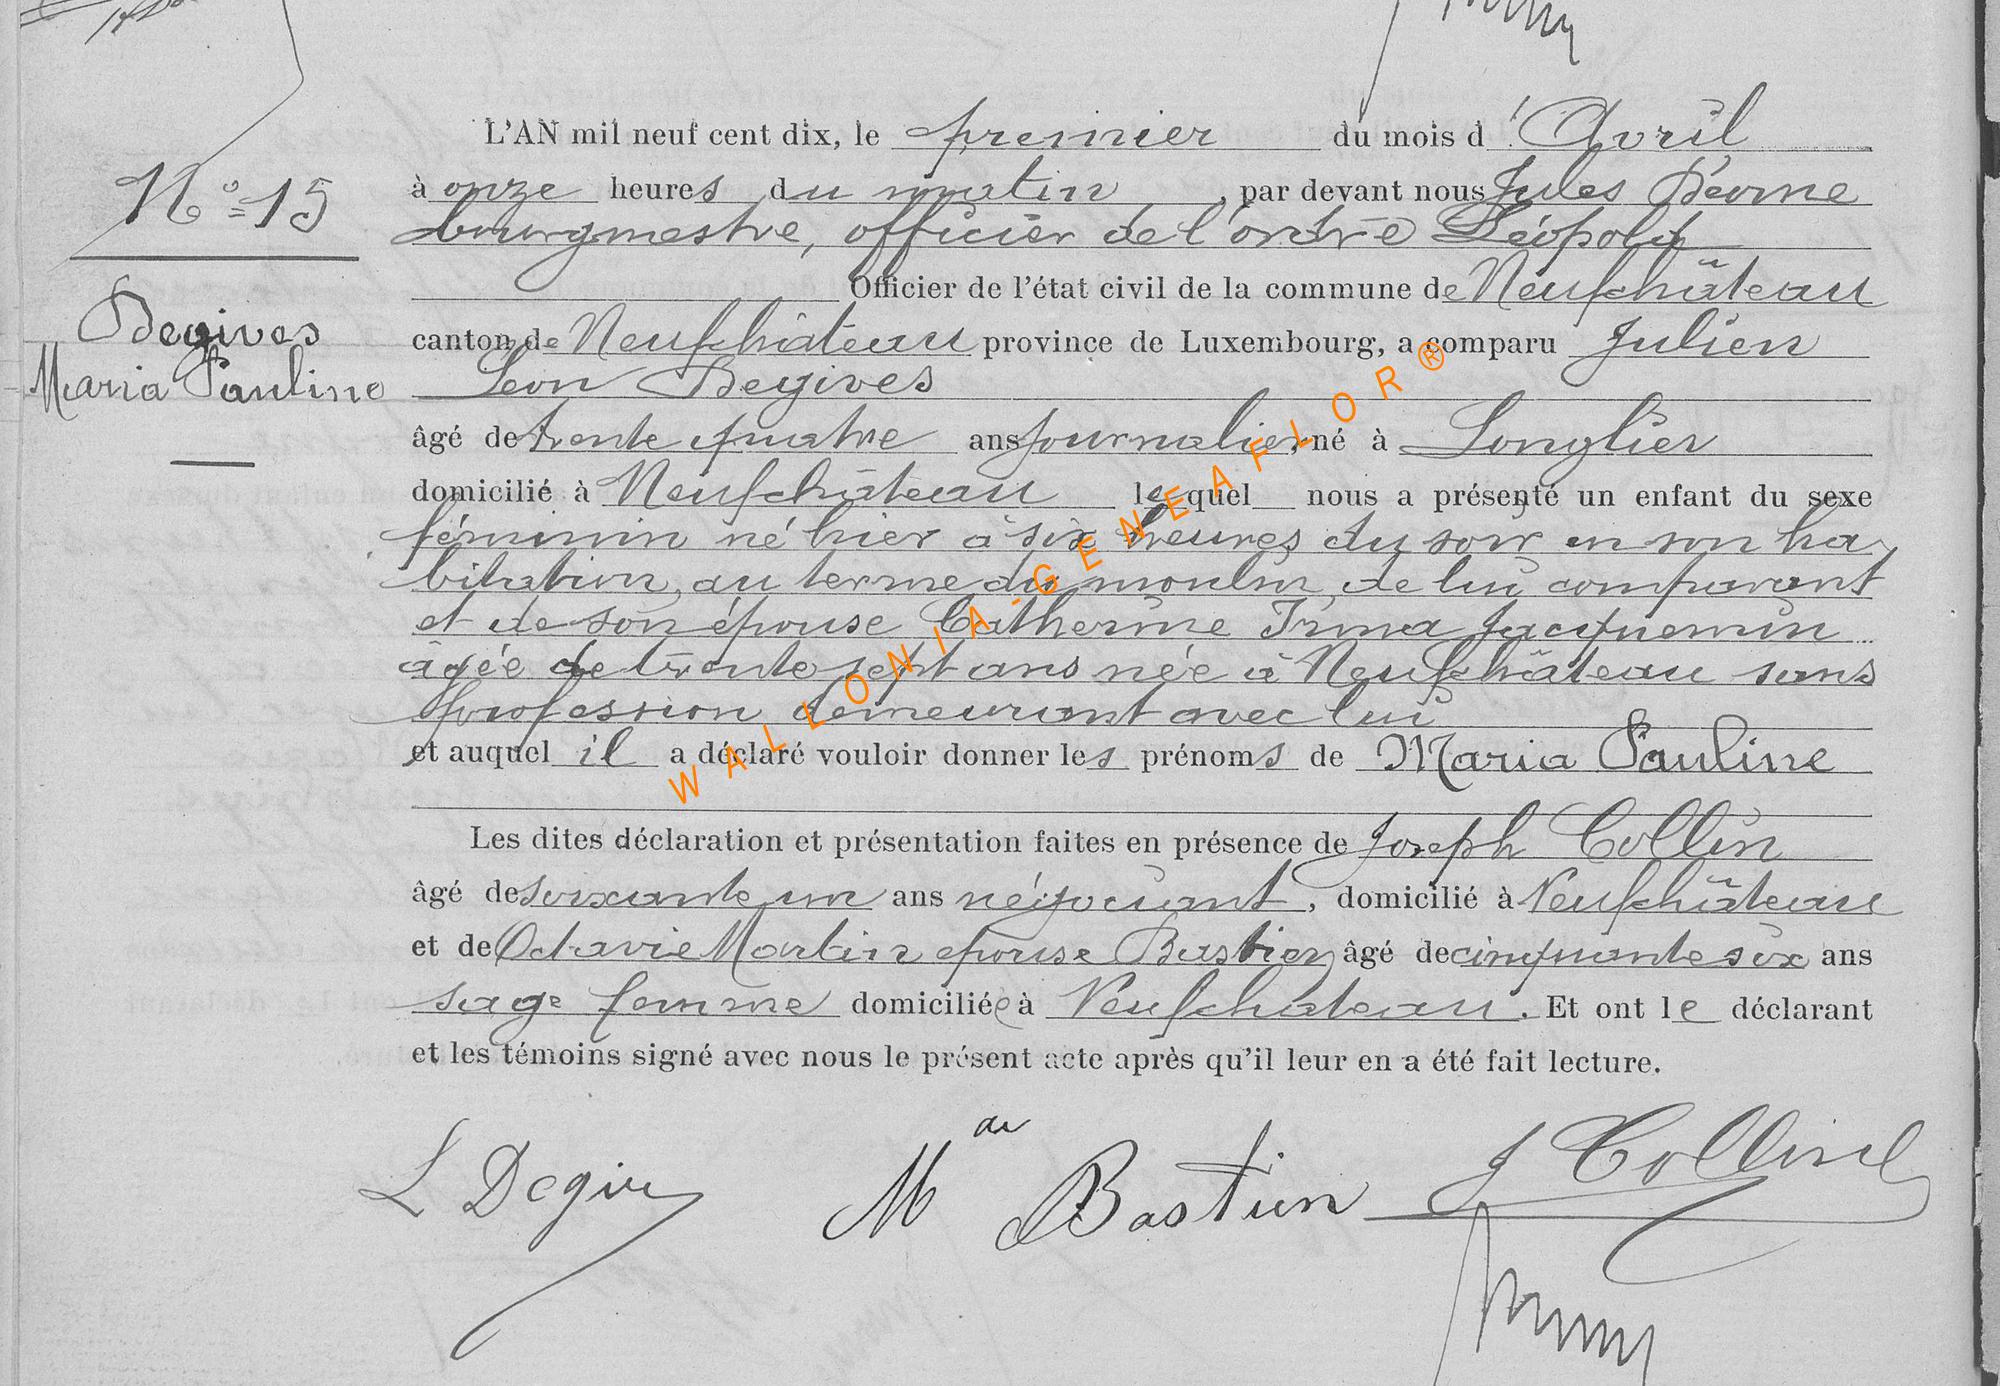 N° 15
Degives
Maria Pauline
L'AN mil neuf cent dix, le premier du mois d'Avril
à onze heures du matin, par devant nous Jules
bourgmestre, officier de l'ordre Léopold
Officier de l'état civil de la commune de Neufchâteau
canton de Neufchâteau province de Luxembourg, a comparu Julien
Léon Degives
âgé de trente quatre ans journalier, né à Longlier
domicilié à Neufchâteau lequel nous a présenté un enfant du sexe
féminin né hier à six heures du soir en son ha
bitation, au terme du moulin, de lui comparant
et de son épouse Catherine Irma Jacquemin
âgée de trente sept ans née à Neufchâteau sans
profession demeurant avec lui
et auquel il a déclaré vouloir donner les prénoms de Maria Pauline
Les dites déclaration et présentation faites en présence de Joseph Collin
âgé de soixante un ans négociant, domicilié à Neufchâteau
et de Octavie Martin épouse Bastien âgé de cinquante six ans
sage femme domiciliée à Neufchateau. Et ont le déclarant
et les témoins signé avec nous le présent acte après qu'il leur en a été fait lecture.
L Degives Mde Bastien J Collin
WALLONIA-GENEAFLOR®